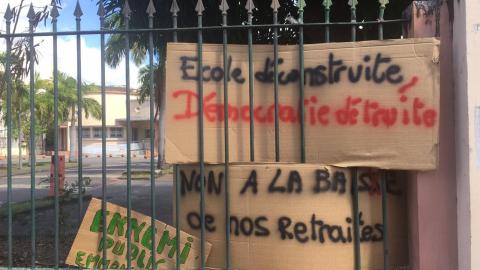 Ecole déconstruite,
Démocratie détruite
NON A LA BaisSe
de nos Retraites
ENNEMI
PUBLIC
EMMAN